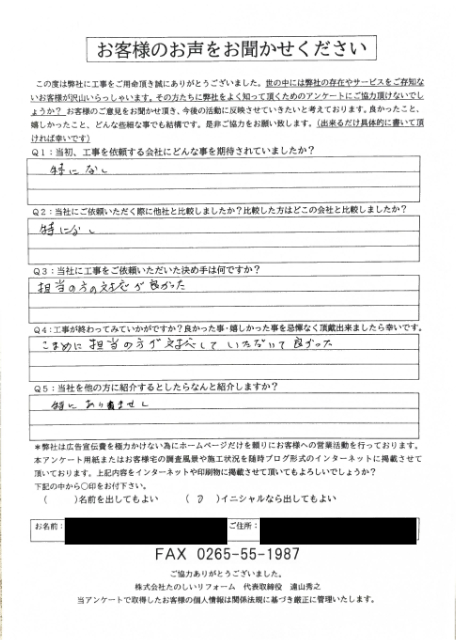 お客様のお声をお聞かせください
この度は弊社に工事をご用命頂き誠にありがとうございました。世の中には弊社の存在やサービスをご存知な
いお客様が沢山いらっしゃいます。その方たちに弊社をよく知って頂くためのアンケートにご協力頂けないでし
ょうか？ お客様のご意見をお聞かせ頂き、今後の活動に反映させていきたいと考えております。良かったこと、
嬉しかったこと、どんな些細な事でも結構です。是非ご協力をお願い致します。(出来るだけ具体的に書いて頂
ければ幸いです)
Q1：当初、工事を依頼する会社にどんな事を期待されていましたか？
特になし
Q2：当社にご依頼いただく際に他社と比較しましたか？比較した方はどこの会社と比較しましたか？
特になし
Q3：当社に工事をご依頼いただいた決め手は何ですか？
担当の方の対応が良かった
Q4：工事が終わってみていかがですか？良かった事・嬉しかった事を忌憚なく頂戴出来ましたら幸いです。
こまめに担当の方が対応して いただいて良かった
Q5：当社を他の方に紹介するとしたらなんと紹介しますか？
特にありません
＊弊社は広告宣伝費を極力かけない為にホームページだけを頼りにお客様への営業活動を行っております。
本アンケート用紙またはお客様宅の調査風景や施工状況を随時ブログ形式のインターネットに掲載させて
頂いております。上記内容をインターネットや印刷物に掲載させて頂いてもよろしいでしょうか？
下記の中から〇印をお付下さい。
(　　)名前を出してもよい　　(　)イニシャルなら出してもよい
お名前：　ご住所：
FAX 0265-55-1987
ご協力ありがとうございました。
株式会社たのしいリフォーム　代表取締役　遠山秀之
当アンケートで取得したお客様の個人情報は関係法規に基づき厳正に管理いたします。